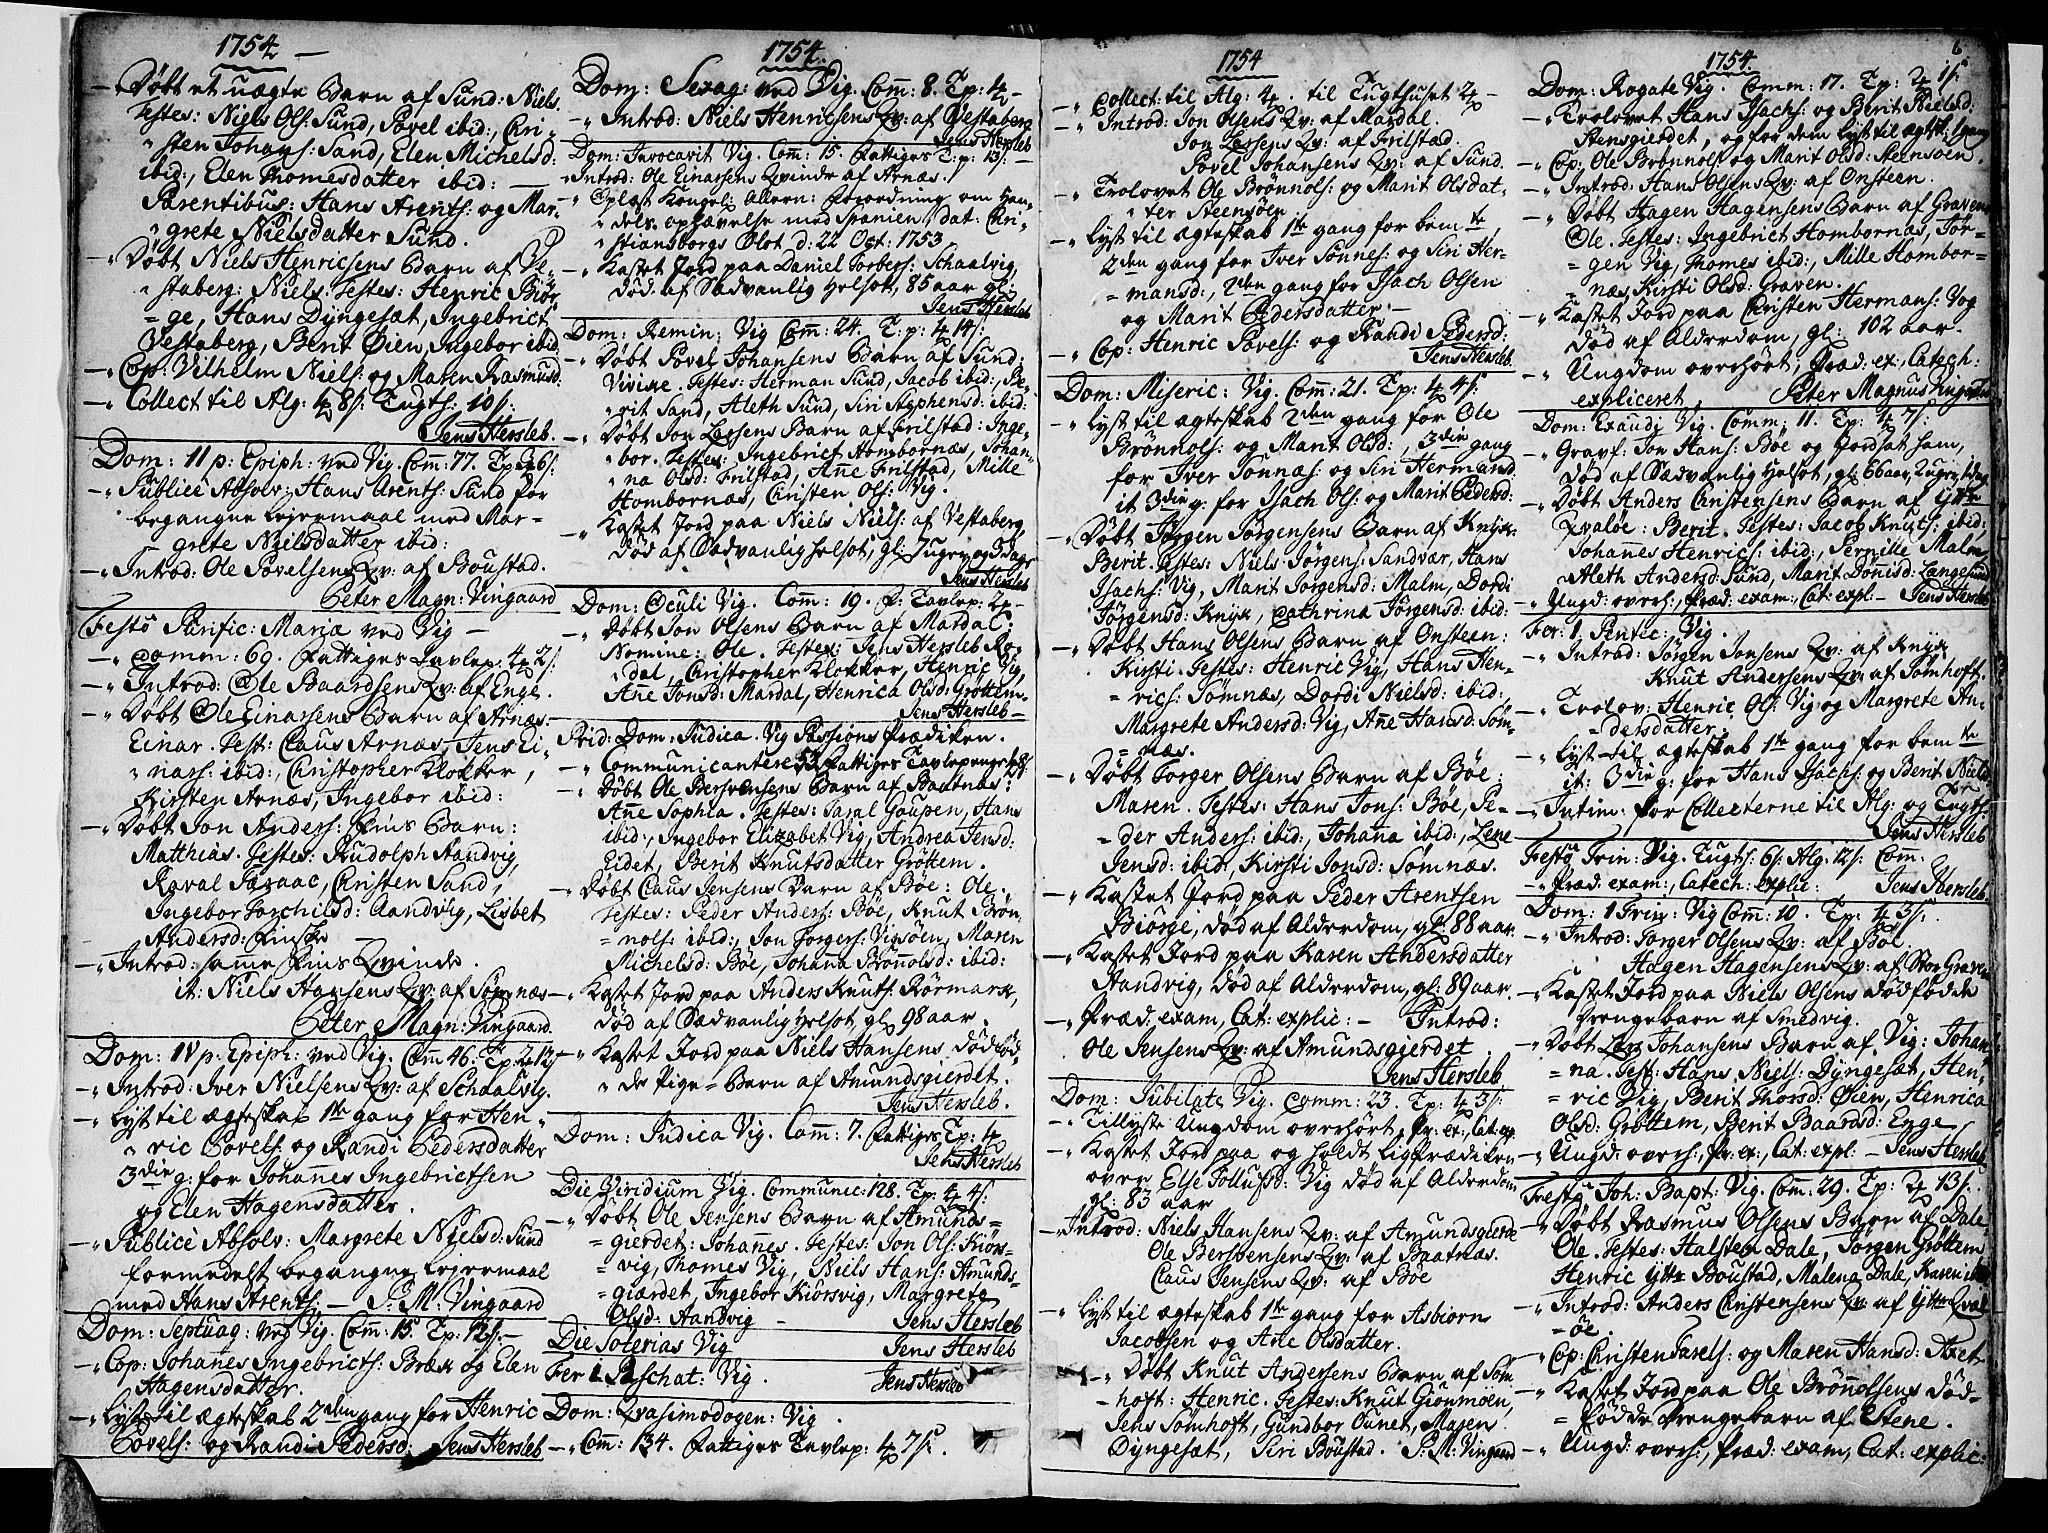 1754
—„ Døbt et uægte Barn af Sund: Niels.
Testes: Niels Ols: Sund, Povel ibid:, Chri-
„ sten Johans: Sand, Elen Michelsd:
ibid:, Elen Thomesdatter ibid: —
Parentibus: Hans Arents: og Mar-
„ grete Nielsdatter Sund.
—„ Døbt Niels Henricsens Barn af Ve-
„ staberg: Niels. Testes: Henric Biør-
= ge, Hans Dyngesæt, Ingebrict
Vestaberg, Berit Øien, Ingebor ibid
—„ Cop: Vilhelm Niels: og Maren Rasmusd:
—„ Collect til Alg: 4 8/: Tugts: 10/:
Jens Hersleb.
Dom: 11 p: Epiph: ved Vig. Com̅: 77. Tp: 6/:
—„ Publicè Absolv: Hans Arents: Sund for
begangne Lejermaal med Mar-
= grete Nielsdatter ibid:
—„ Introd: Ole Povelsens Qv: af Boustad.
Peter Magn: Vingaard
Festô Purific: Mariæ ved Vig —
—„ Comm: 69. Fattiges Tavlep: 4 2/:
—„ Introd: Ole Baardsens Qv: af Enge.
—„ Døbt Ole Einarsens Barn af Arnæs.
Einar. Test: Claus Arnæs, Jens Ei-
„ nars: ibid:, Christopher Klokker,
Kirsten Arnæs, Ingebor ibid:
—„ Døbt Jon Anders: Fins Barn:
Matthias. Testes: Rudolph Aandvig,
Christen Sand,
Ingebor Torchilsd: Aandvig, Lisbet
Andersd: Finske
—„ Introd: samme Fins Qvinde.
it: Niels Hansens Qv: af Sømnæs
Peter Magn: Vingaard.
Dom: IV p: Epiph: ved Vig. Com̅ 46. Tp: 2 12/
—„ Introd: Iver Nielsens Qv: af Schaalvig.
—„ Lyst til ægteskab 1te gang for Hen-
„ ric Povels: og Randi Pedersdatter
3die g: for Johannes Ingebrictsen
og Elen Hagensdatter.
—„ Publicè Absolv: Margrete Nielsd: Sund
formedelst begangne Lejermaal
med Hans Arents. — P. M: Vingaard
Dom: Septuag: ved Vig. Com̅: 15. Tp: 12/: —
—„ Cop: Johanes Ingebricts: Bræk og Elen
Hagensdatter.
—„ Lyst til ægteskab 2den gang for Henric
Povels: og Randi Pedersd: Jens Hersleb
1754.
Dom: Sexag: ved Vig. Com̅: 8. Tp: 4 —
—„ Introd: Niels Henricsens Qv: af Vestaberg
Jens Hersleb
Dom: Invocavit Vig. Com̅: 15. Fattiges Tp: 13/: —
„ Introd: Ole Einarsens Qvinde af Arnæs.
—„ Oplæst Kongel: Allern: Forordning om Han-
„ dels ophævelse med Spanien dat: Chri-
„ stiansborgs Slot d: 22 Oct: 1753.
—„ Kastet Jord paa Daniel Torbers: Schaalvig,
død af Sædvanlig Helsot, 85 aar gl:
Jens Hersleb
Dom: Remin: Vig Com̅: 24. T: p: 4 14/:
—„ Døbt Povel Johansens Barn af Sund:
Vivike. Testes: Herman Sund, Jacob ibid:, Be-
„ rit Sand, Aleth Sund, Siri Styphensd: ibid:
—„ Døbt Jon Lassens Barn af Frilstad: Inge-
„ bor. Testes: Ingebrict Hombornæs, Johan-
„ na Olsd: Frilstad, An̅e Frilstad, Mille
Hombornæs, Christen Ols: Vig.
—„ Kastet Jord paa Niels Niels: af Vestaberg,
død af Sædvanlig helsot, gl: 7 ugr og 3 dage
Jens Hersleb
Dom: Oculi Vig. Com̅: 19. F: Tavlep: 2 —
—„ Døbt Jon Olsens Barn af Mardal:
Nomine: Ole. Testes: Jens Hersleb Ro-
„ dal, Christopher Klokker, Henric Vig,
An̅e Jonsd: Mardal, Henrica Olsd: Grøttem —
Jens Hersleb —
Prid: Dom: Judica. Vig Passions Prædiken.
—„ Communicantere 53 Fattiges Tavlepenge 4 8/:
—„ Døbt Ole Bersvensens Barn af Baatnæs:
An̅e Sophia. Testes: Taral Goupen, Hans
ibid:, Ingebor Elizabet Vig, Andrea Jensd:
Eidet, Berit Knutsdatter Grøttem.
—„ Døbt Claus Jensens Barn af Bøe: Ole.
Testes: Peder Anders: Bøe, Knut Brøn-
= nols: ibid:, Jon Torgers: Vigsøen, Maren
Michelsd: Bøe, Johan̅a Brøn̅olsd: ibid:
—„ Kastet Jord paa Anders Knuts: Rørmark,
død af Sædvanlig Helsot, gl: 98 aar.
—„ Kastet Jord paa Niels Hansens dødfød-
„ de Pige = Barn af Amundsgierdet.
Jens Hersleb.
Dom: Judica Vig. Com̅: 7. Fattiges Tp: 4
Jens Hersleb
Die Viridium Vig. Communic: 128. Tp: 4 4/:
—„ Døbt Ole Jensens Barn af Amunds-
= gierdet: Johan̅es. Testes: Jon Ols: Kiørs-
= vig, Thomes Vig, Niels Hans: Amunds-
= giærdet, Ingebor Kiørsvig, Margrete
Olsd: Aandvig — Jens Hersleb
Die Soterias Vig Jens Hersleb
Fer 1. Paschat: Vig. Jens Hersleb
Dom: Qvasimodogen: Vig.
—„ Com̅: 134. Fattiges Tavlep: 4 7/:
1754
—„ Collect: til Alg: 4. til Tugthuset 2 —
—„ Introd: Jon Olsens Qv: af Mardal.
Jon Lassens Qv: af Frilstad.
Povel Johansens Qv: af Sund.
—„ Trolovet Ole Brønnols: og Marit Olsdat-
„ ter Steensøen
—„ Lyst til ægteskab 1te gang for bemte,
2den gang for Iver Sønnes: og Siri Her-
= mansd:, 2den gang for Isach Olsen
og Marit Pedersdatter. —
—„ Cop: Henric Povels: og Randi Pedersd:
Jens Hersleb
Dom: Miseric: Vig. Com̅: 21. Tp: 4 4/:
—„ Lyst til ægteskab 2den gang for Ole
Brønnols: og Marit Olsd:, 3die gang
for Iver Sønnæs: og Siri Hermansd:
it 3die g: for Isach Ols: og Marit Pedersd:
—„ Døbt Jørgen Jørgensens Barn af Knyk:
Berit. Testes: Niels Jørgens: Sandvær, Hans
Isachs: Vig, Marit Jørgensd: Malm, Dordi
Jørgensd: Knyk, Cathrina Jørgensd: ibid:
—„ Døbt Hans Olsens Barn af Onsteen:
Kirsti. Testes: Henric Vig, Hans Hen-
= rics: Sømnæs, Dordi Nielsd: ibid:,
Margrete Andersd: Vig, An̅e Hansd: Søm-
= næs.
—„ Døbt Torger Olsens Barn af Bøe:
Maren. Testes: Hans Jons: Bøe, Pe-
= der Anders: ibid:, Johan̅a ibid:, Lene
Jensd: ibid:, Kirsti Jonsd: Sømnæs.
—„ Kastet Jord paa Peder Arentsen
Biørge, død af Alderdom, gl: 88 aar.
—„ Kastet Jord paa Karen Andersdatter
Aandvig, død af Alderdom, gl: 89 aar.
—„ Præd: exam, Cat: explic: — Introd:
Ole Jensens Qv: af Amundsgierdet
Jens Hersleb
Dom: Jubilate Vig. Comm: 23. Tp: 4 3/:
—„ Tillyste Ungdom overhørt, Pr: ex:, Cat: exp
—„ Kastet Jord paa og holdt Ligprædiken
over Else Tollufsd: Vig død af Alderdom
gl: 83 aar
—„ Introd: Niels Hansens Qv: af Amundsgierde
Ole Bersvensens Qv: af Baatnæs.
Claus Jensens Qv: af Bøe
—„ Lyst til ægteskab 1te gang for Asbiørn
Jacobsen og Ane Olsdatter.
—„ Døbt Knut Andersens Barn af Søm-
hoft: Henric. Testes: Knut Gionmoen,
Jens Sømhoft, Gundbor Ounet, Maren
Dyngesæt, Siri Boustad. P. M: Vingaard
1754. 6
Dom: Rogate Vig. Comm: 17. Tp: 2 1/:
—„ Trolovet Hans Isachs: og Berit Nielsd:
Stensgierdet, og for dem lyst til ægtsk: 1 gang
—„ Cop: Ole Brønnols: og Marit Olsd: Steensøen.
—„ Introd: Hans Olsens Qv: af Onsteen.
—„ Døbt Hagen Hagensens Barn af Graven:
Ole. Testes: Ingebrict Hombornæs, Jør-
= gen Vig, Thomes ibid:, Mille Hombor-
= næs, Kirsti Olsd: Graven.
—„ Kastet Jord paa Christen Hermans: Vog
død af Alderdom, gl: 102 aar.
—„ Ungdom overhørt, Præd: ex:, Catech:
expliceret, Peter Magnus Vingaard
Dom: Exaudi Vig. Comm: 11. Tp: 4 7/:
—„ Gravf: Jon Hans: Bøe og Jordsat ham,
død af Sædvanlig Helsot, gl: 66 aar, 2 ugr, 1 dag
—„ Døbt Anders Christensens Barn af Ytter
Qvaløe: Berit. Testes: Jacob Knuts: ibid:,
Johannes Henrics: ibid:, Pernille Malm,
Aleth Andersd: Sund, Marit Dønisd: Langesund
—„ Ungd: overh:, Præd: exam:, Cat: expl: — Jens Hersleb
Fer: 1. Pentec: Vig.
—„ Introd: Jørgen Jonsens Qv: af Knyk
Knut Andersens Qv: af Sømhoft.
—„ Trolov: Henric Ols: Vig og Margrete An-
= dersdatter
—„ Lyst til ægteskab 1te gang for bemte
it: 3die g: for Hans Isachs: og Berit Nielsd
—„ Intim: for Collecterne til Alg: og Tugts:
Jens Hersleb
Festô Trin: Vig. Tugts: 6/: Alg: 12/: Com̅:
—„ Præd: exam:, Catech: explic: Jens Hersleb.
Dom: 1 Trin: Vig Com̅: 10. Tp: 4 3/:
—„ Introd: Torger Olsens Qv: af Bøe.
Hagen Hagensens Qv: af Stor Graven
—„ Kastet Jord paa Niels Olsens dødfødde
Drengebarn af Smedvig.
—„ Døbt Lars Johansens Barn af Vig: Johan-
= na. Test: Hans Niels: Dyngesæt, Hen-
= ric Vig, Berit Thorsd: Øien, Henrica
Olsd: Grøttem, Berit Baardsd: Enge
—„ Ungd: overh:, Pr: ex:, Cat: expl: — Jens Hersleb
Festô Joh: Bapt: Vig. Com̅: 29. Tp: 2 13/:
—„ Døbt Rasmus Olsens Barn af Dale
Ole. Testes: Halsten Dale, Jørgen Grøttem
Henric Ytter Boustad, Malena Dale, Karen ibid
—„ Introd: Anders Christensens Qv: af Ytter Qval
= øe.
—„ Cop: Christen Tarels: og Maren Hansd: Axet
—„ Kastet Jord paa Ole Brønnolsens død-
= fødde Drengebarn af Stene.
—„ Ungd: overh:, Præd: exam, Cat: explic: